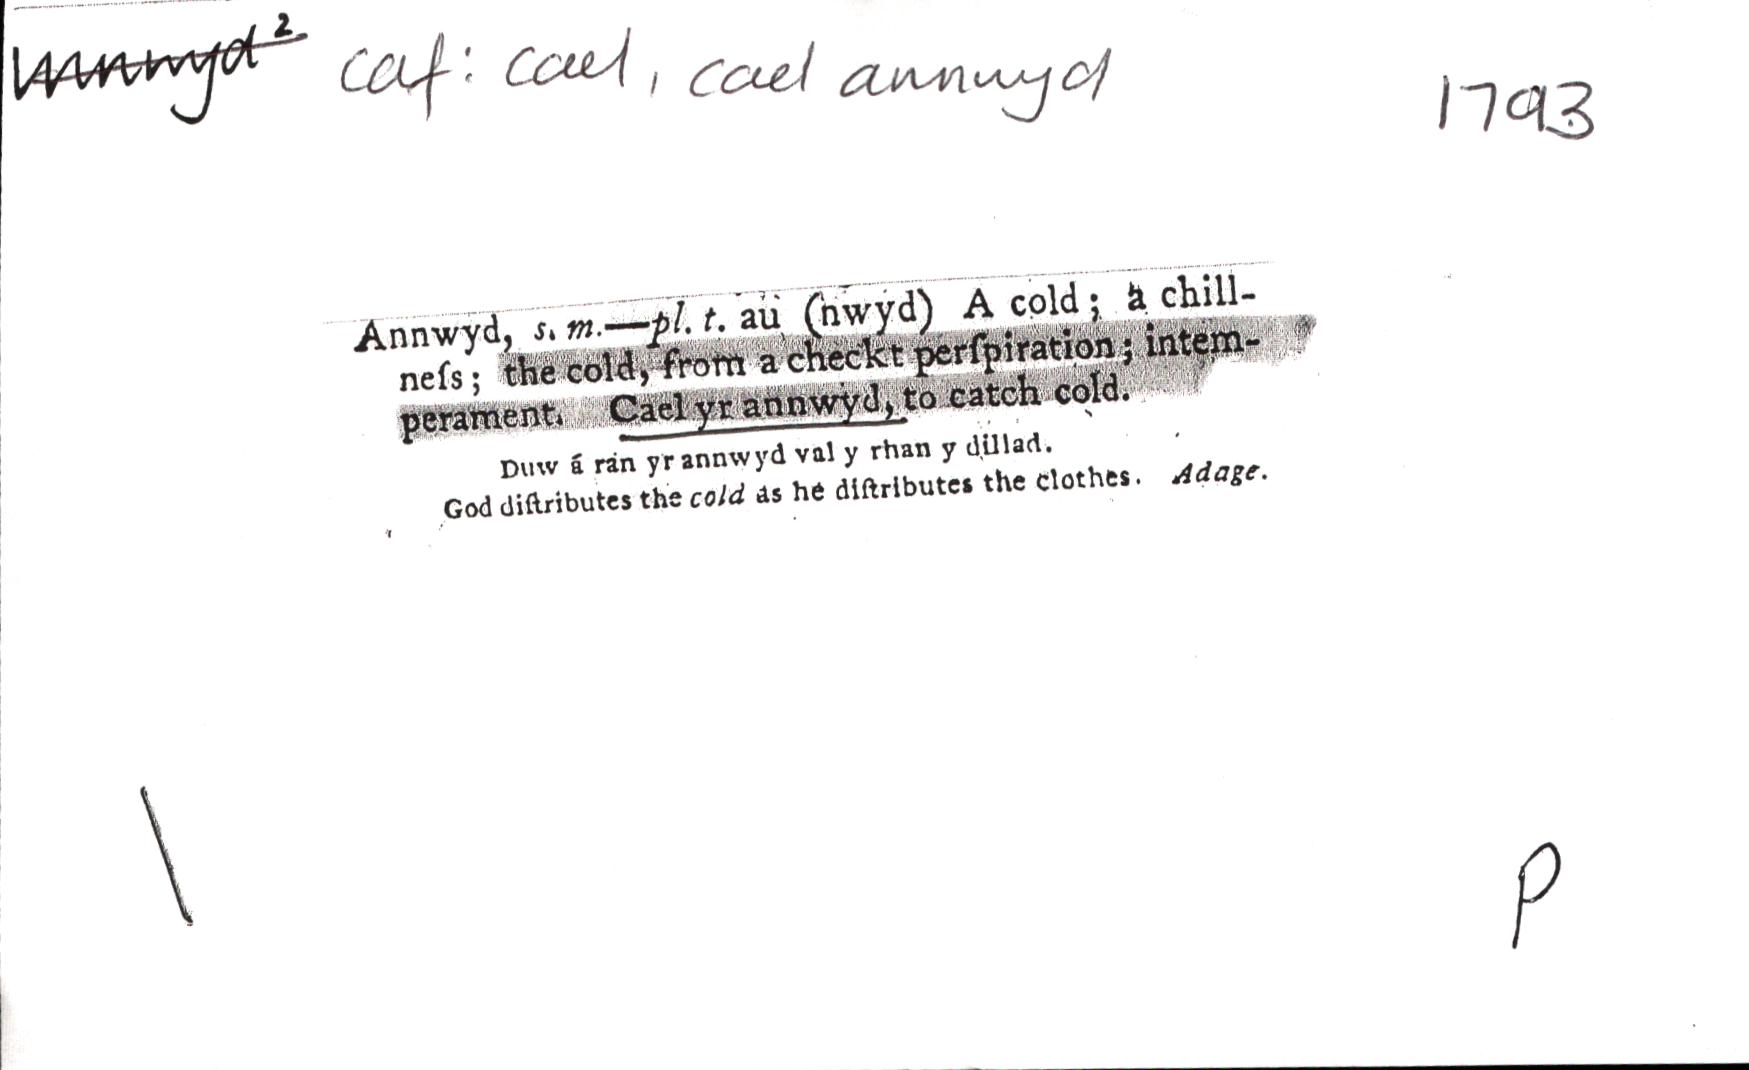 annwyd² caf: cael, cael annwyd
1793
Annwyd, s. m.—pl. t. au (nwyd) A cold; a chill-
neſs; the cold, from a checkt perſpiration; intem-
perament. Cael yr annwyd, to catch cold.
Duw á rán yr annwyd val y rhan y dillad.
God diſtributes the cold as he diſtributes the clothes. Adage.
\
P